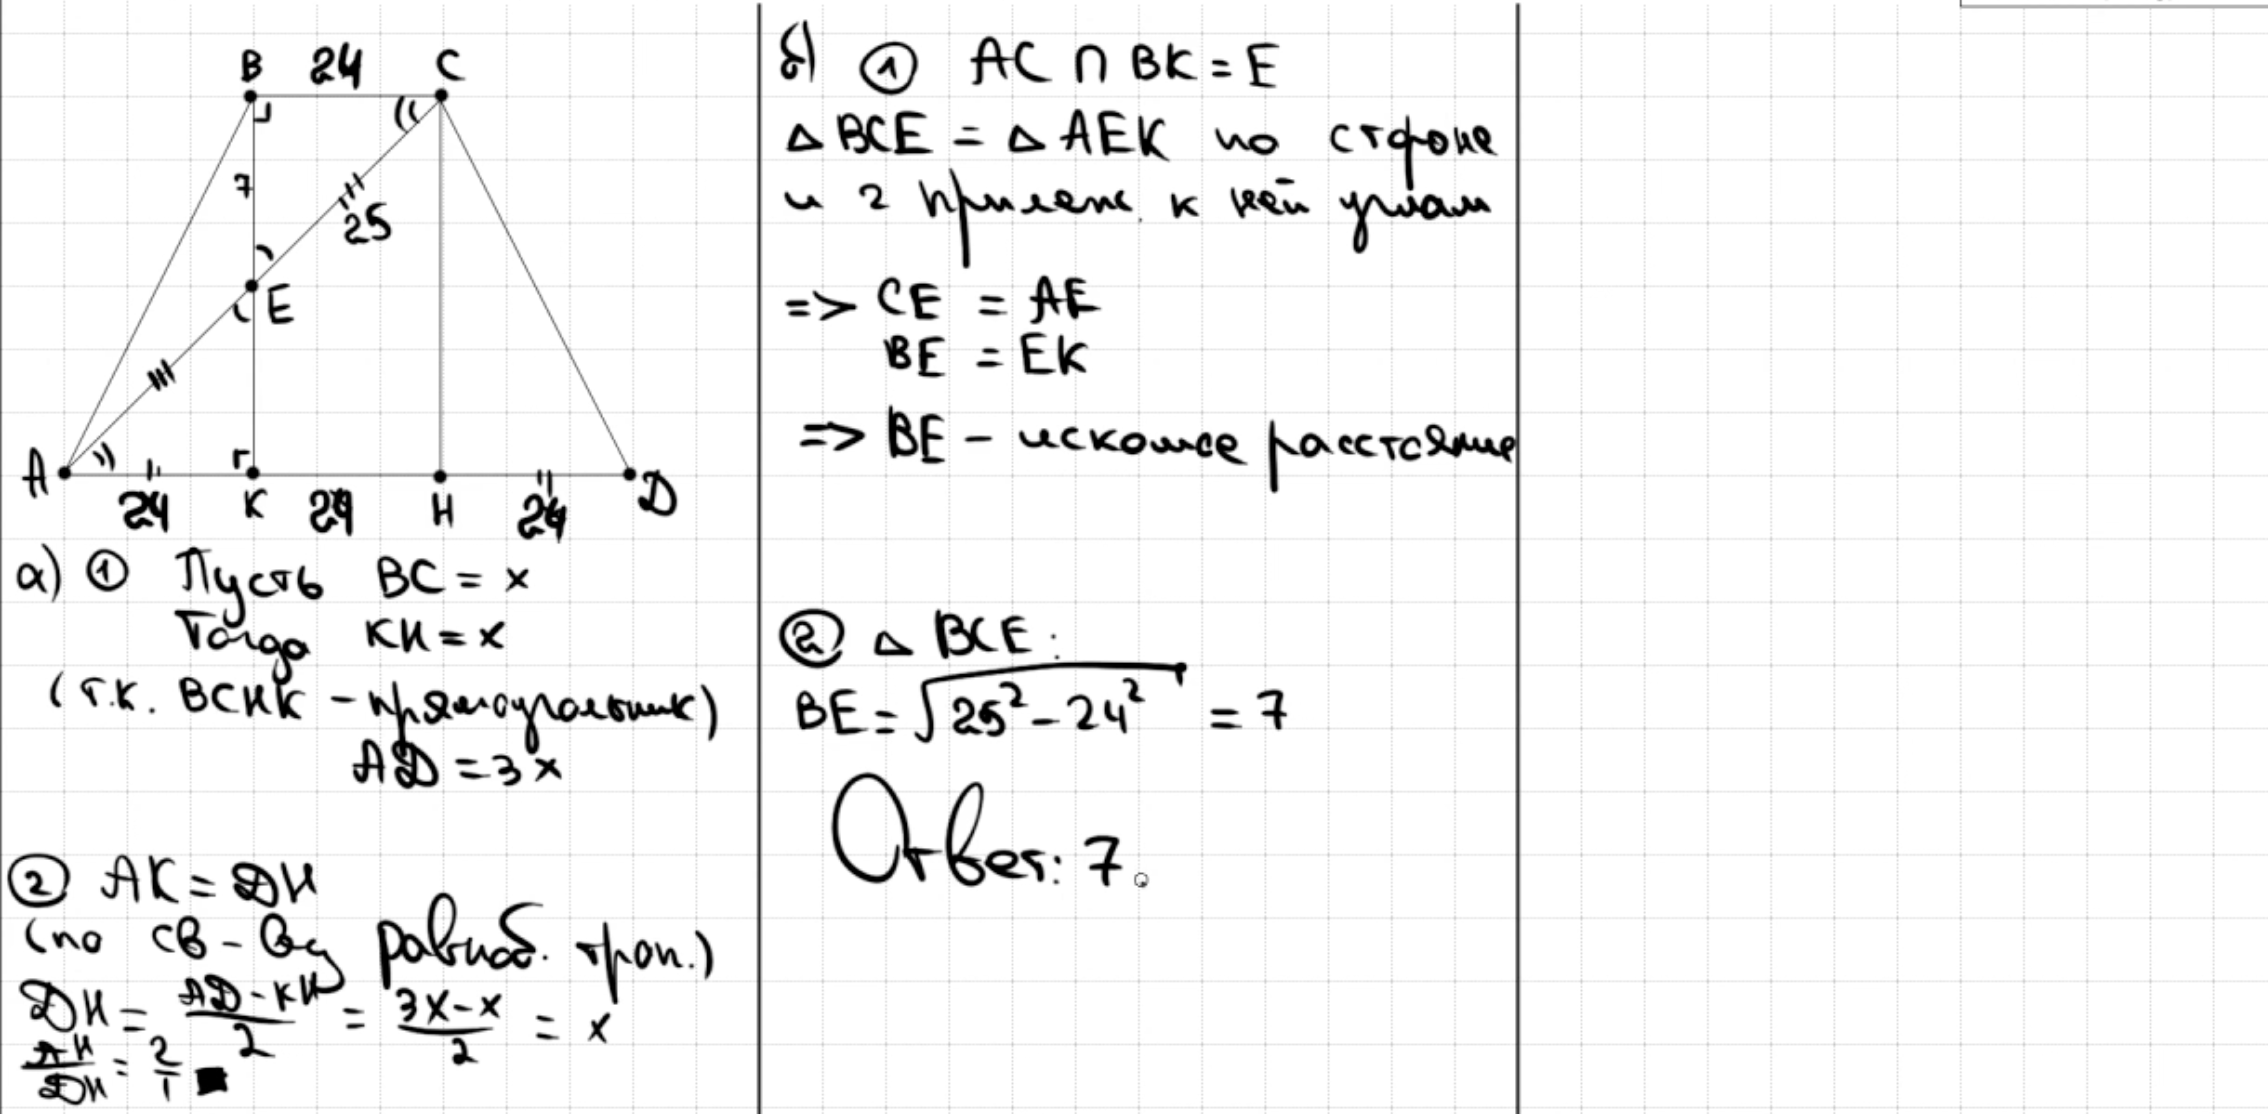 B 24 C
7
25
E
A 24 K 24 H 24 D
а) ① Пусть BC = x
Тогда KH = x
(т.к. BCHK - прямоугольник)
AD = 3x
② AK = DH
(по св-ву равноб. трап.)
DH = AD-KH/2 = 3x-x/2 = x
AH/DH = 2/1
б) ① AC ∩ BK = E
△ BCE = △ AEK по стороне
и 2 прилеж. к ней углам
=> CE = AE
BE = EK
=> BE - искомое расстояние
② △ BCE:
BE = √25²-24² = 7
Ответ: 7.